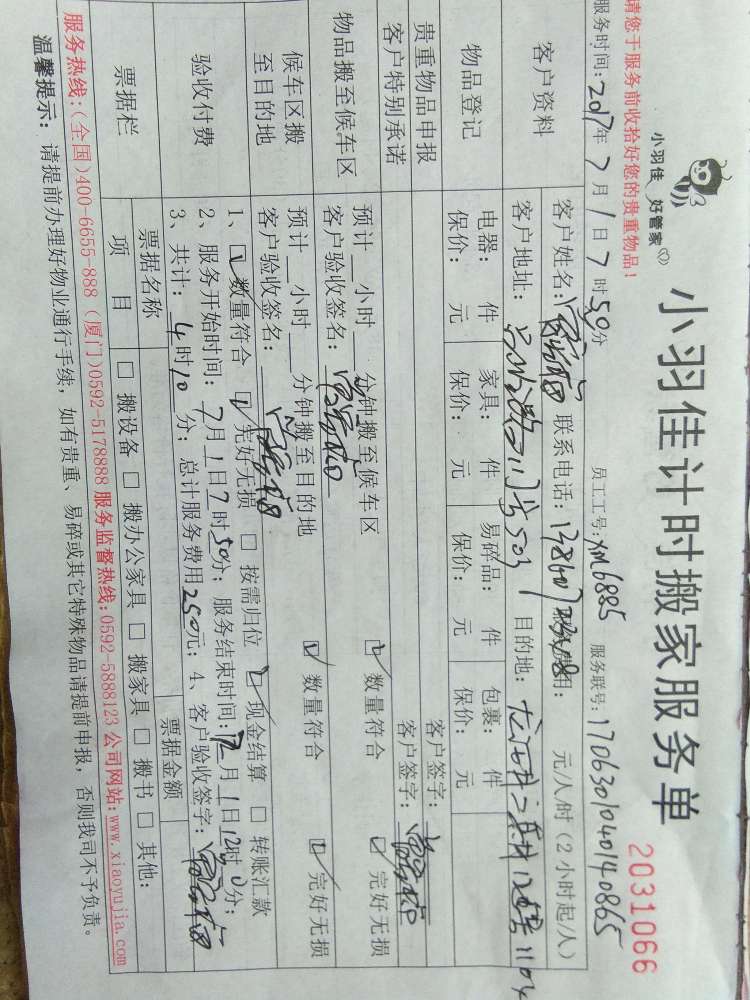 小羽佳 好管家
小羽佳计时搬家服务单
2031066
请您于服务前收拾好您的贵重物品!
服务时间:2017年7月1日7时50分 员工工号:XM6885 服务联号:170630104014 0865
客户资料
客户姓名: 联系电话: 元/人/时(2小时起/人)
客户地址: 503 目的地: 1104
物品登记
电器: 件 家具: 件 易碎品: 件 包裹: 件
保价: 元 保价: 元 保价: 元 保价: 元
贵重物品申报
客户签字:
客户特别承诺
客户签字:
物品搬至候车区
预计 小时 分钟搬至候车区 数量符合 完好无损
客户验收签名:
候车区搬至目的地
预计 小时 分钟搬至目的地 数量符合 完好无损
客户验收签名:
验收付费
1、数量符合 完好无损 按需归位 现金结算 转账汇款
2、服务开始时间:7月1日7时50分;服务结束时间:7月1日12时0分;
3、共计:4时10分;总计服务费用250元;4、客户验收签字:
票据栏
票据名称 票据金额
项目 搬设备 搬办公家具 搬家具 搬书 其他:
服务热线:(全国)400-6655-888 (厦门)0592-5178888 服务监督热线:0592-5888123 公司网站:www.xiaoyujia.com
温馨提示:请提前办理好物业通行手续,如有贵重、易碎或其它特殊物品请提前申报,否则我司不予负责。